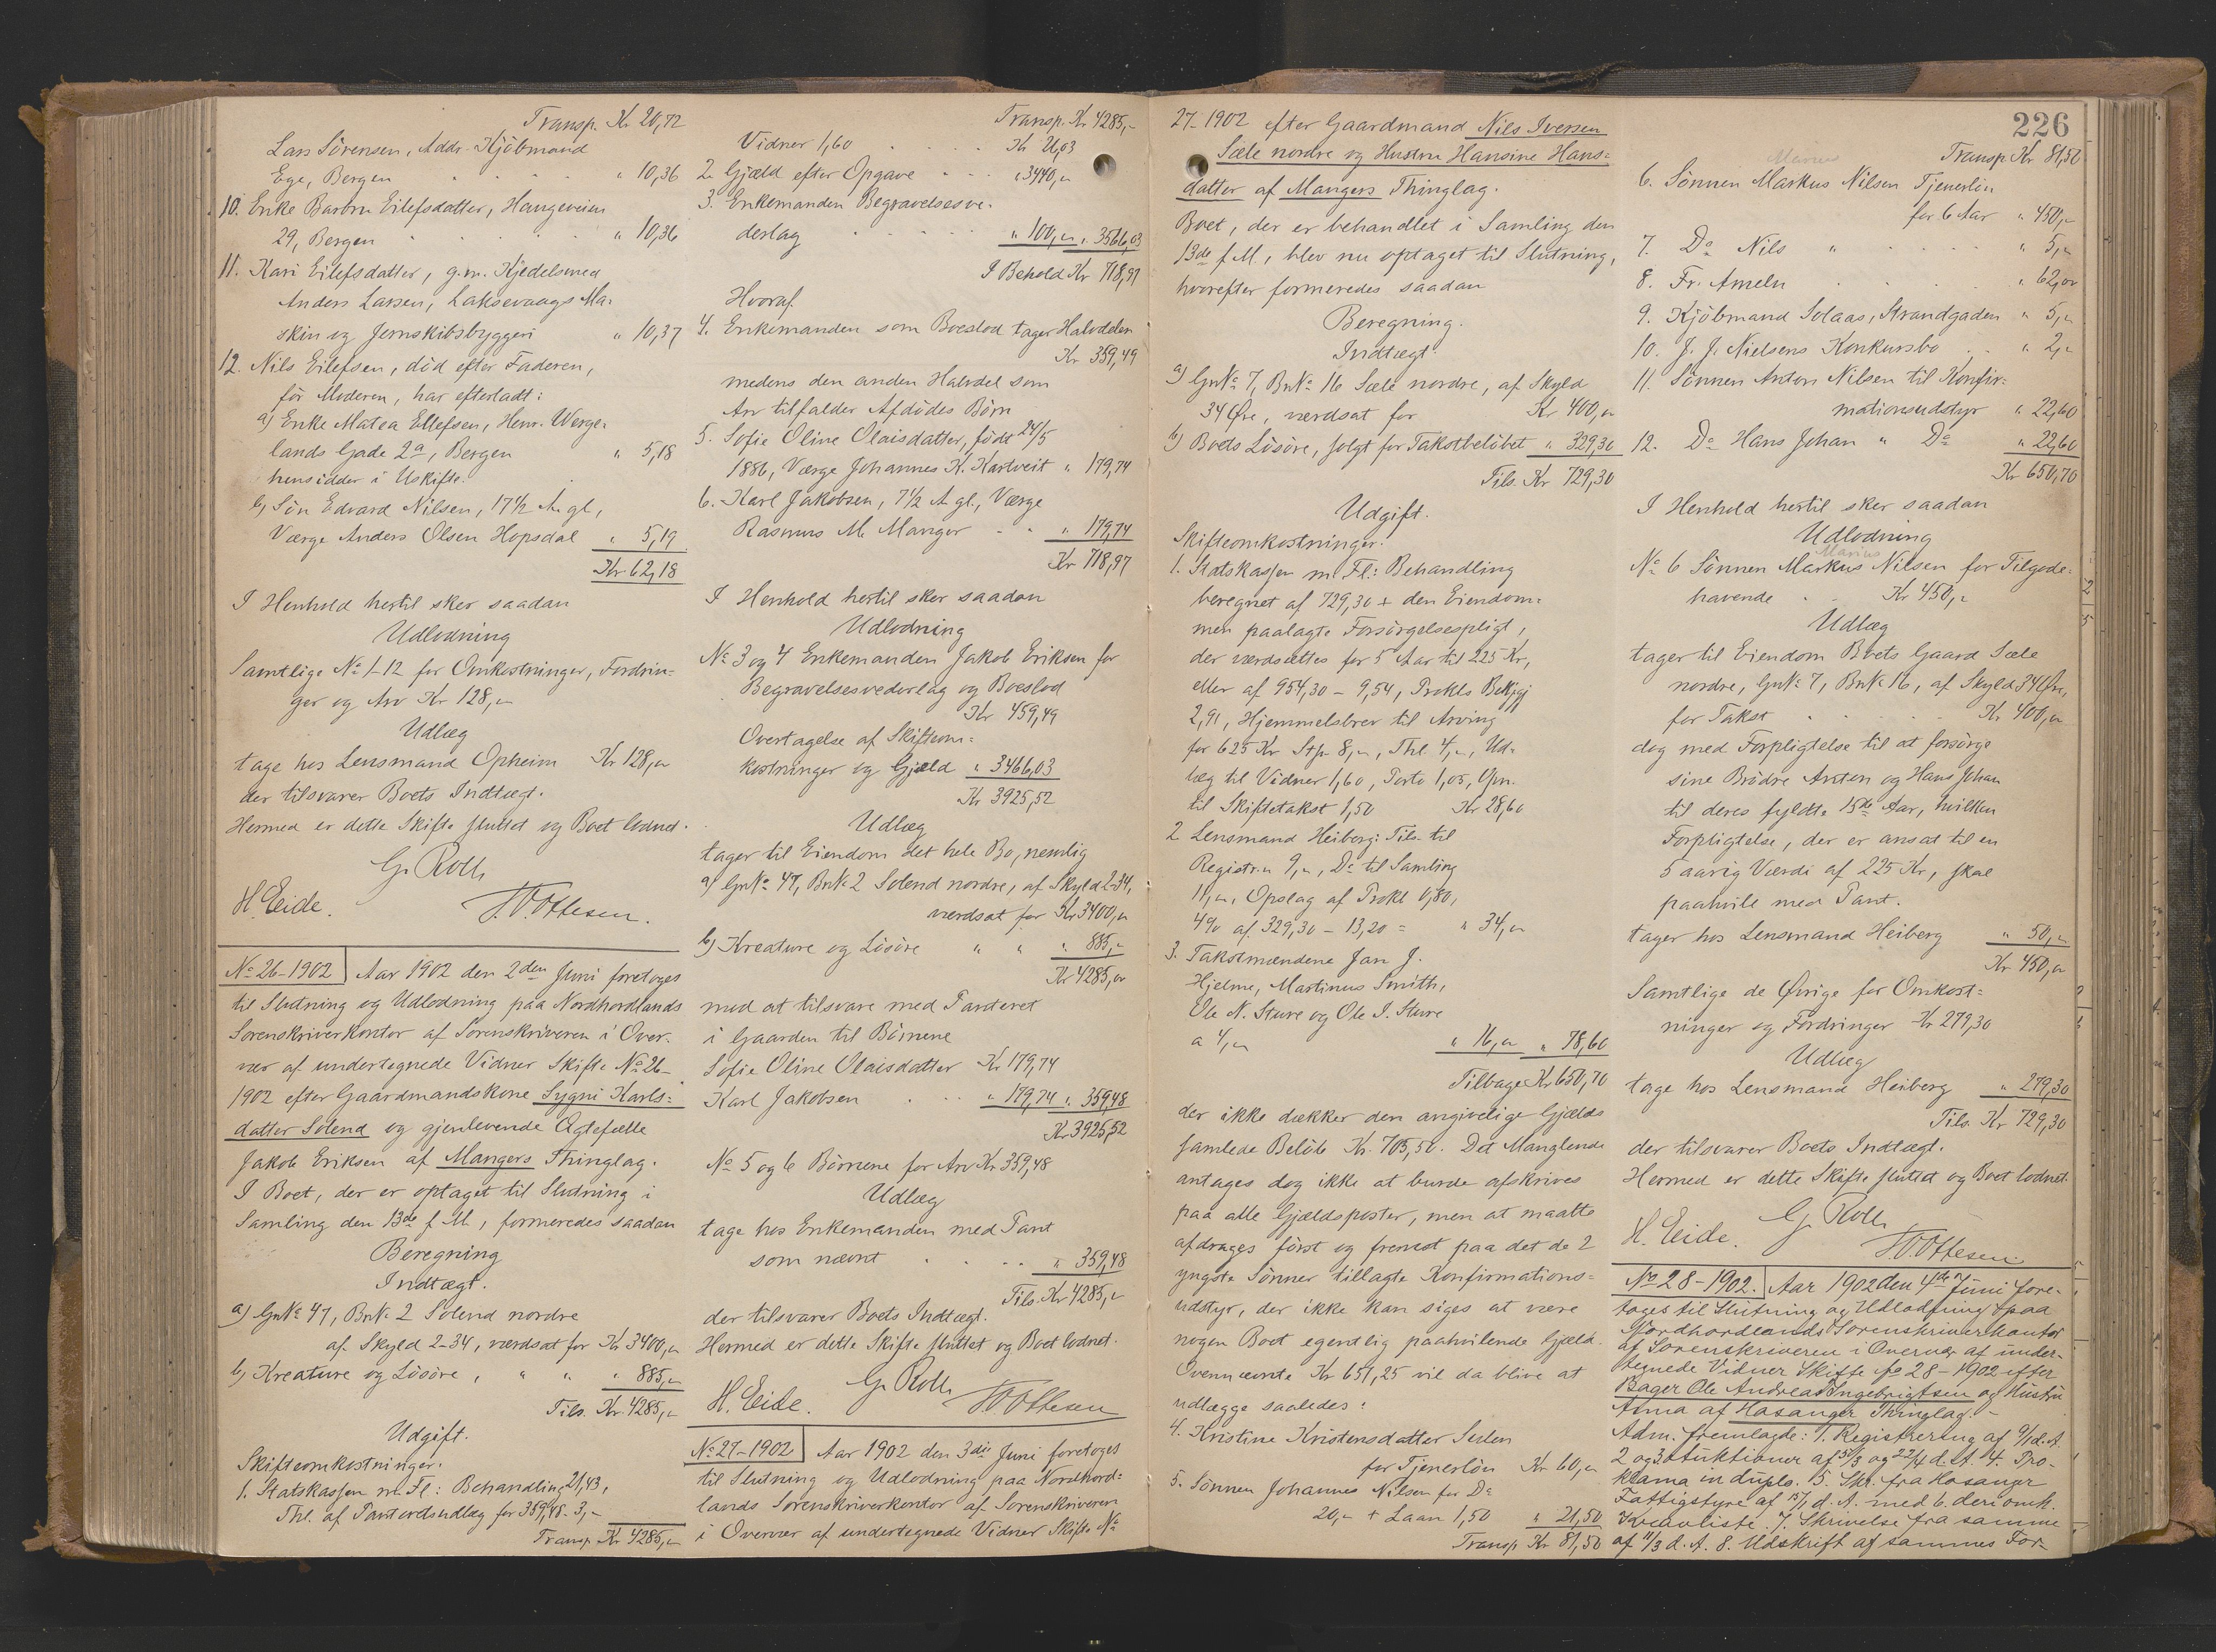 Transp. Kr 20,72
Lars Sörensen, Addr. Kjöbmand
Ege, Bergen . . . . " 10,36
10. Enke Barbru Eilefsdatter, Haugeveien
29, Bergen . . . . " 10,36
11. Kari Eilefsdatter, g.m. Kjedelsmed
Anders Larsen, Laksevaags Ma-
skin og Jernskibsbyggeri " 10,37
12. Nils Eilefsen, död efter Faderen,
för Moderen, har efterladt:
a) Enke Matea Ellefsen, Henr. Werge-
lands Gade 2a, Bergen " 5,18
hensidder i Uskifte.
b) Sön Edvard Nilsen, 17½ A. gl,
Værge Anders Olsen Hopsdal " 5,19
Kr. 62,18
I Henhold hertil sker saadan
Udlodning
Samtlige No 1-12 for Omkostninger, Fordrin-
ger og Arv Kr 128,"
Udlæg
tage hos Lensmand Opheim Kr 128,"
der tilsvarer Boets Indtægt.
Hermed er dette Skifte sluttet og Boet lodnet.
G. Roll
H. Eide. T.V. Ottesen.
No 26-1902 Aar 1902 den 2den Juni foretoges
til Slutning og Udlodning paa Nordhordlands
Sorenskriverkontor af Sorenskriveren i Over-
vær af undertegnede Vidner Skifte No 26-
1902 efter Gaardmandskone Sygni Karls-
datter Solend og gjenlevende Ægtefælle
Jakob Eriksen af Mangers Thinglag.
I Boet, der er optaget til Slutning i
Samling den 13de f. M., formeredes saadan
Beregning
Indtægt.
a) GrNo 47, BrNo 2 Solend nordre
af Skyld 2-34, værdsat for Kr 3400,"
b) Kreature og Lösöre, " " " 885,"
Tils. Kr. 4285,"
Udgift.
Skifteomkostninger.
1. Statskassen m. Fl: Behandling 21,43,
Thl. af Panteretsudlæg for 359,48 - 3,-
Transp. Kr 4285,"
Transp. Kr 4285,-
Vidner 1,60 . . . . Kr 26,03
2. Gjæld efter Opgave . . . " 3440,"
3. Enkemanden Begravelsesve-
derlag . . . . " 100," " 3566,03
I Behold Kr 718,97
Hvoraf.
4. Enkemanden som Boeslod tager Halvdelen
Kr 359,49
medens den anden Halvdel som
Arv tilfalder Afdödes Börn
5. Sofie Oline Olaisdatter, födt 24/5
1886, Værge Johannes K. Kartveit " 179,74
6. Karl Jakobsen, 7½ A. gl., Værge
Rasmus M. Manger . . " 179,74
Kr 718,97
I Henhold hertil sker saadan
Udlodning
No 3 og 4 Enkemanden Jakob Eriksen for
Begravelsesvederlag og Boeslod
Kr 459,49
Overtagelse af Skifteom-
kostninger og Gjæld " 3466,03
Kr 3925,52
Udlæg
tager til Eiendom det hele Bo, nemlig
a) GrNo 47, BrNo 2 Solend nordre, af Skyld 2-34,
værdsat for Kr 3400,"
b) Kreature og Lösöre " " " 885,-
Kr 4285,"
mod at tilsvare med Panteret
i Gaarden til Börnene
Sofie Oline Olaisdatter Kr 179,74
Karl Jakobsen . . . " 179,74 " 359,48
Kr. 3925,52
No 5 og 6 Börnene for Arv Kr 359,48
Udlæg
tage hos Enkemanden med Pant
som nævnt . . . . " 359,48
Tils. Kr 4285,"
der tilsvarer Boets Indtægt.
Hermed er dette Skifte sluttet og Boet lodnet.
G. Roll
H. Eide. T.V. Ottesen
No 27-1902 Aar 1902 den 3die Juni foretoges
til Slutning og Udlodning paa Nordhord-
lands Sorenskriverkontor af Sorenskriveren
i Overvær af undertegnede Vidner Skifte No
27-1902 efter Gaardmand Nils Iversen
Sæle nordre og Hustru Hansine Hans-
datter af Mangers Thinglag.
Boet, der er behandlet i Samling den
13de f. M., blev nu optaget til Slutning,
hvorefter formeredes saadan
Beregning.
Indtægt.
a) GrNo 7, BrNo 16 Sæle nordre, af Skyld
34 Öre, værdsat for Kr 400,"
b) Boets Lösöre, solgt for Takstbelöbet " 329,30
Tils. Kr 729,30
Udgift.
Skifteomkostninger.
1. Statskassen m. Fl: Behandling
beregnet af 729,30 + den Eiendom-
men paalagte Forsörgelsespligt,
der værdsættes for 5 Aar til 225 Kr,
eller af 954,30 - 9,54, Prokls Bekjgj
2,91, Hjemmelsbrev til Arving
for 625 Kr Stp. 8,", Thl. 4,", Ud-
læg til Vidner 1,60, Porto 1,05, Gjen.
til Skiftetakst 1,50 Kr 28,60
2 Lensmand Heiberg: Tils. til
Registr.n 9,", Do til Samling
11,", Opslag af Prokl 0,80,
4% af 329,30 - 13,20 = " 34,"
3. Takstmændene Jan J.
Hjelme, Martinus Smith,
Ole N. Sture og Ole I. Sture
a 4,- " 16,- " 78,60
Tilbage Kr 650,70
der ikke dækker den angivelige Gjælds
samlede Belöb Kr. 705,50. Det Manglende
antages dog ikke at burde afskrives
paa alle Gjældsposter, men at maatte
afdrages först og fremst paa det de 2
yngste Sönner tillagte Konfirmations-
udstyr, der ikke kan siges at være
nogen Boet egentlig paahvilende Gjæld.
Ovennævnte Kr 651,25 vil da blive at
udlægge saaledes:
4. Kristine Kristensdatter
for Tjenerlön Kr 60,"
5. Sönnen Johannes Nilsen for Do
20,- + Laan 1,50 " 21,50
Transp. Kr 81,50
226
Transp. Kr 81,50
Marius
6. Sönnen Markus Nilsen Tjenerlön
for 6 Aar " 450,-
7. Do Nils " . . . " 5,"
8. Fr. Ameln . . . " 62,00
9. Kjöbmand Solaas, Strandgaden " 5,"
10. J. J. Nielsens Konkursbo . . " 2,"
11. Sönnen Anton Nilsen til Konfir-
mationsudstyr " 22,60
12. Do Hans Johan " Do " 22,60
Kr 650,70
I Henhold hertil sker saadan
Udlodning
Marius
No 6 Sönnen Markus Nilsen for Tilgode-
havende . . Kr 450,"
Udlæg
tager til Eiendom Boets Gaard Sæle
nordre, GrNo 7, BrNo 16, af Skyld 34 Öre,
for Takst . . . . Kr. 400,"
dog med Forpligtelse til at forsörge
sine Brödre Anton og Hans Johan
til deres fyldte 15de Aar, hvilken
Forpligtelse, der er ansat til en
5 aarig Værdi af 225 Kr, skal
paahvile med Pant.
tager hos Lensmand Heiberg " 50,"
Kr 450,"
Samtlige de Övrige for Omkost-
ninger og Fordringer Kr 279,30
Udlæg
tage hos Lensmand Heiberg " 279,30
Tils. Kr 729,30
der tilsvarer Boets Indtægt.
Hermed er dette Skifte sluttet og Boet lodnet.
G. Roll
H. Eide. T.V. Ottesen
No 28-1902. Aar 1902 den 4de Juni fore-
toges til Slutning og Udlodning paa
Nordhordlands Sorenskriverkontor
af Sorenskriveren i Overvær af under-
tegnede Vidner Skifte No 28-1902 efter
Bager Ole Andreas Ingebrigtsen og Hustru
Anna af Hosanger Thinglag. -
Adm. fremlagde: 1. Registrering af 9/1 d. A.
2 og 3 Auktioner af 5/3 og 22/4 d. A. 4. Pro-
klama in duplo. 5. Skr. fra Hosanger
Fattigstyre af 15/1 d. A. med 6. deri omh.
Kravliste. 7. Skrivelse fra samme
af 11/3 d. A. 8. Udskrift af sammes For-